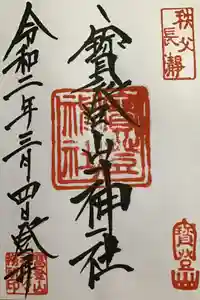 秩父
長瀞
寳登山神社
寳登
山神
社
令和二年三月四日登拝
寳登山